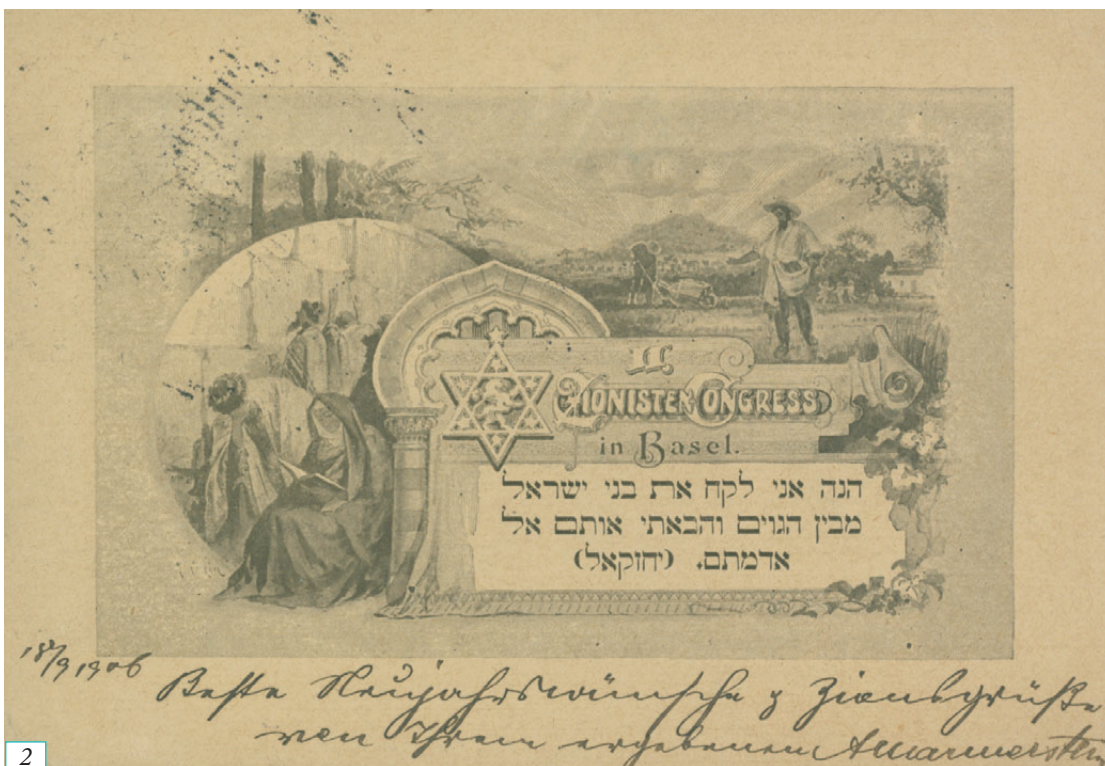 II
ZIONISTEN CONGRESS
in Basel.
הנה אני לקח את בני ישראל
מבין הגוים והבאתי אותם אל
אדמתם. (יחזקאל)
18/9 1906
Beste Neujahrswünsche & Zionsgrüße
von Ihrem ergebenen
2